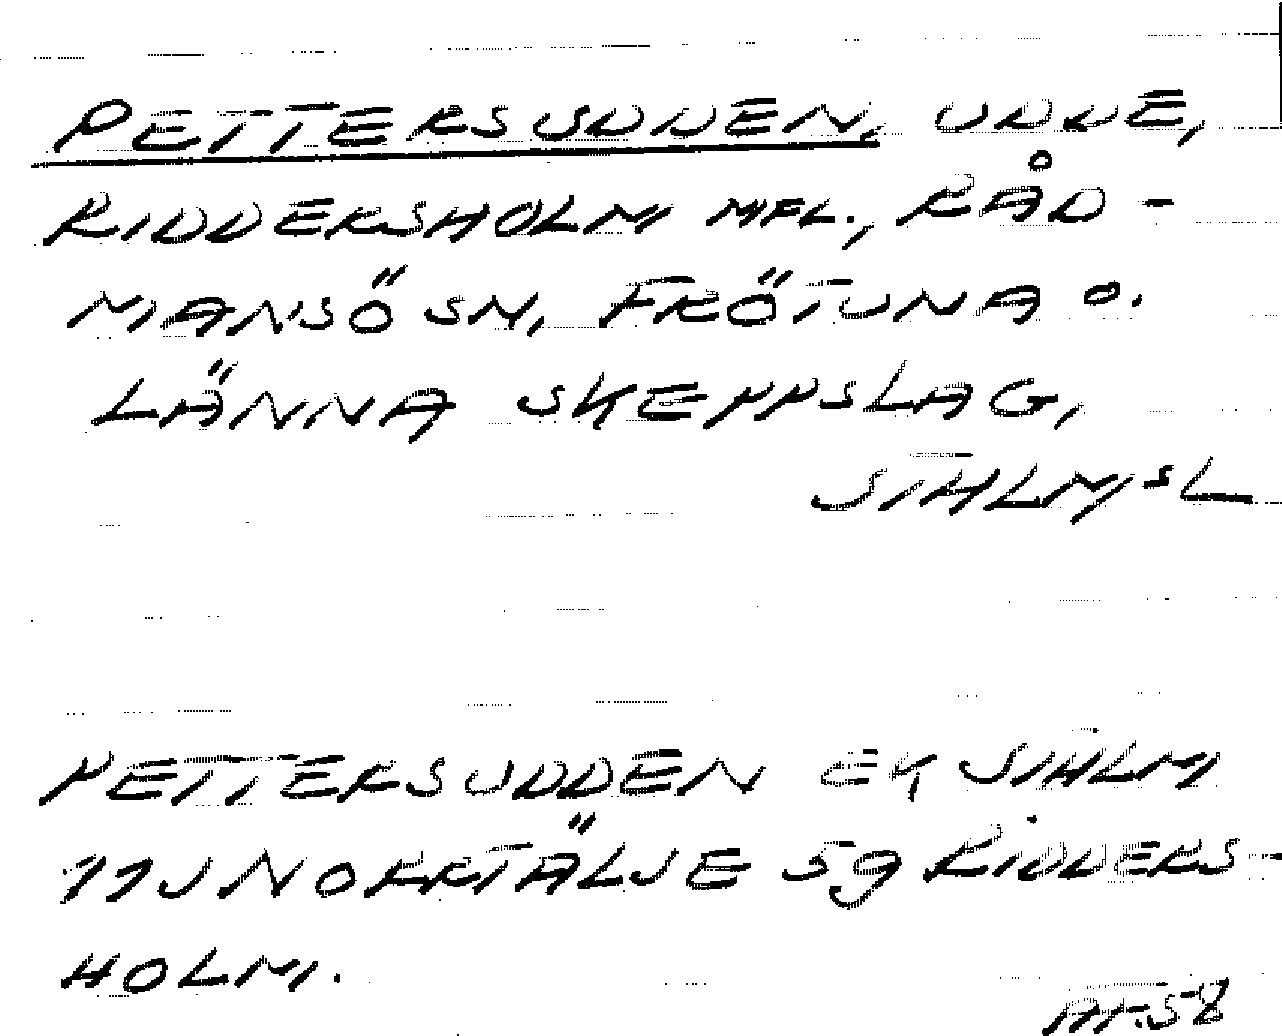 PETTERSUDDEN, UDDE,
RIDDERSHOLM MFL., RÅD-
MANSÖ SN, FRÖTUNA O.
LÄNNA SKEPPSLAG,
STHLMSL
PETTERSUDDEN EK STHLM
11J NORRTÄLJE 59 RIDDERS-
HOLM.